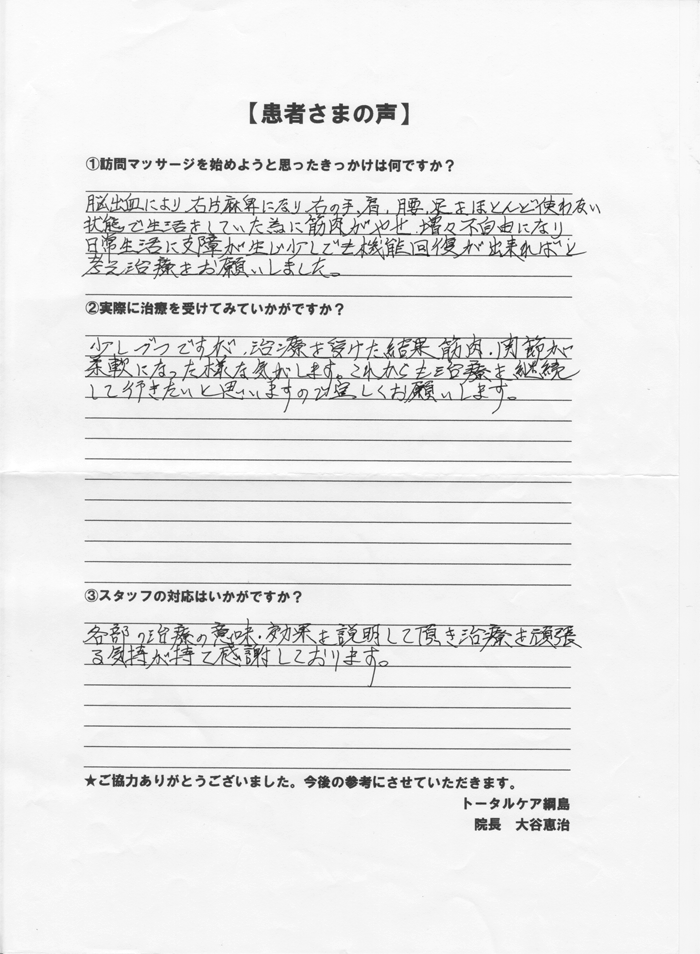 【患者さまの声】
①訪問マッサージを始めようと思ったきっかけは何ですか？
脳出血により右片麻痺になり右の手、肩、腰、足をほとんど使わない
状態で生活をしていた為に筋肉がやせ、増々不自由になり
日常生活に支障が生じ少しでも機能回復が出来ればと
考え治療をお願いしました。
②実際に治療を受けてみていかがですか？
少しづつですが、治療を受けた結果筋肉・関節が
柔軟になった様な気がします。これからも治療を継続
して行きたいと思いますので宜しくお願いします。
③スタッフの対応はいかがですか？
各部の治療の意味・効果を説明して頂き治療を頑張
る気持が持て感謝しております。
★ご協力ありがとうございました。今後の参考にさせていただきます。
トータルケア綱島
院長　大谷恵治